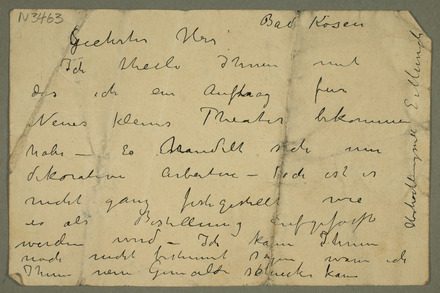 N3463
Bad Kosen
Geehrter Herr
Ich theile Ihnen mit
das ich ein Auftrag fur
Neues kleines Theater bekommen
habe – Es handelt sich um
dekorative Arbeiten – Doch ist es
nicht ganz festgestellt wie
es als Bestellung aufgefasst
werden wird – Ich kann Ihnen
noch nicht bestimmt sagen wann ich
Ihnen neue Gemälde schicken kann
Hochachtungsvoll E. Munch